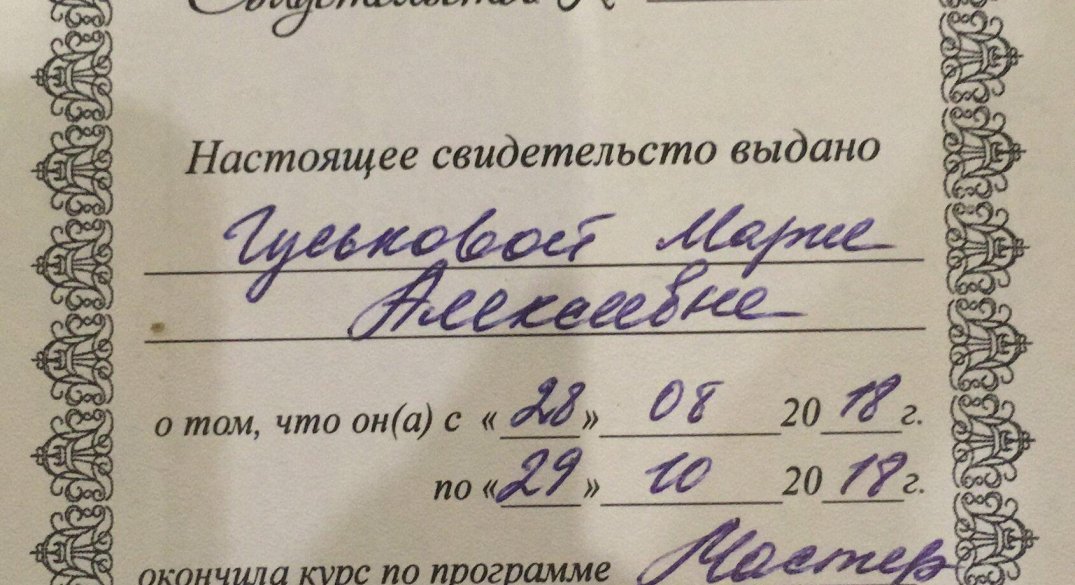 Свидетельство №
Настоящее свидетельсто выдано
Гуськовой Марие
Алексеевне
о том, что он(а) с «28» 08 2018 г.
по «29» 10 2018 г.
окончила курс по программе Мастер